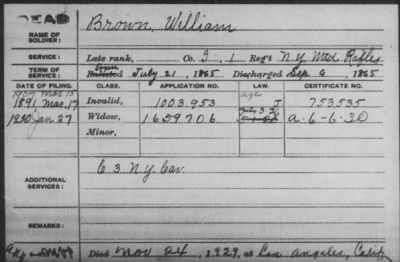 DEAD
NAME OF SOLDIER: Brown, William
SERVICE: Late rank, Co. I, 1 Reg't N.Y. Mtd Rifles
TERM OF SERVICE: Enlisted July 21, 1865 Discharged Sep 6, 1865
DATE OF FILING. CLASS. APPLICATION NO. LAW. CERTIFICATE NO.
1907 Mar. 15
1891 Mar. 17 Invalid, 1003.953 J 753,535
1930 Jan 27 Widow, 1659706 a-6-6-30
Minor,
ADDITIONAL SERVICES: C 3 N.Y. Cav.
REMARKS:
Died Nov 24, 1929, at Los Angeles, Calif